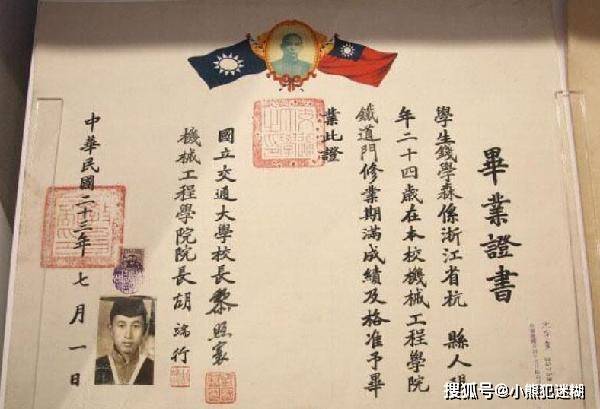 畢業證書
學生錢學森係浙江省杭 縣人現
年二十四歲在本校機械工程學院
鐵道門修業期滿成績及格准予畢
業此證
國立交通大學校長黎照寰
機械工程學院院長胡端行
中華民國二十三年七月一日
搜狐号@小熊犯迷糊